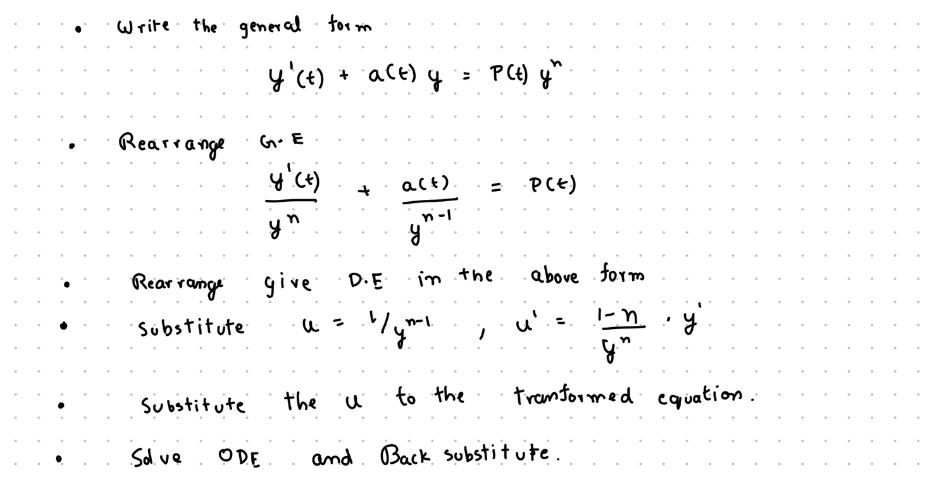 • Write the general form
y'(t) + a(t) y = P(t) y^n
• Rearrange G.E
y'(t)/y^n + a(t)/y^(n-1) = P(t)
• Rearrange give D.E in the above form
• Substitute u = 1/y^(n-1) , u' = (1-n)/y^n . y'
• Substitute the u to the transformed equation.
• Solve ODE and Back substitute.